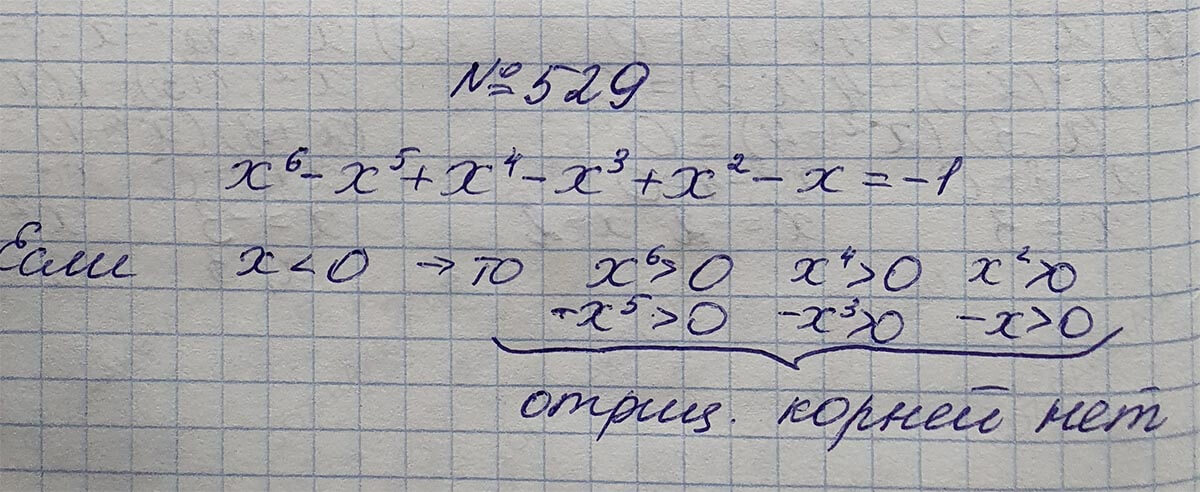 №529
x⁶ - x⁵ + x⁴ - x³ + x² - x = -1
Если x < 0 → то x⁶ > 0 x⁴ > 0 x² > 0
-x⁵ > 0 -x³ > 0 -x > 0
отриц. корней нет